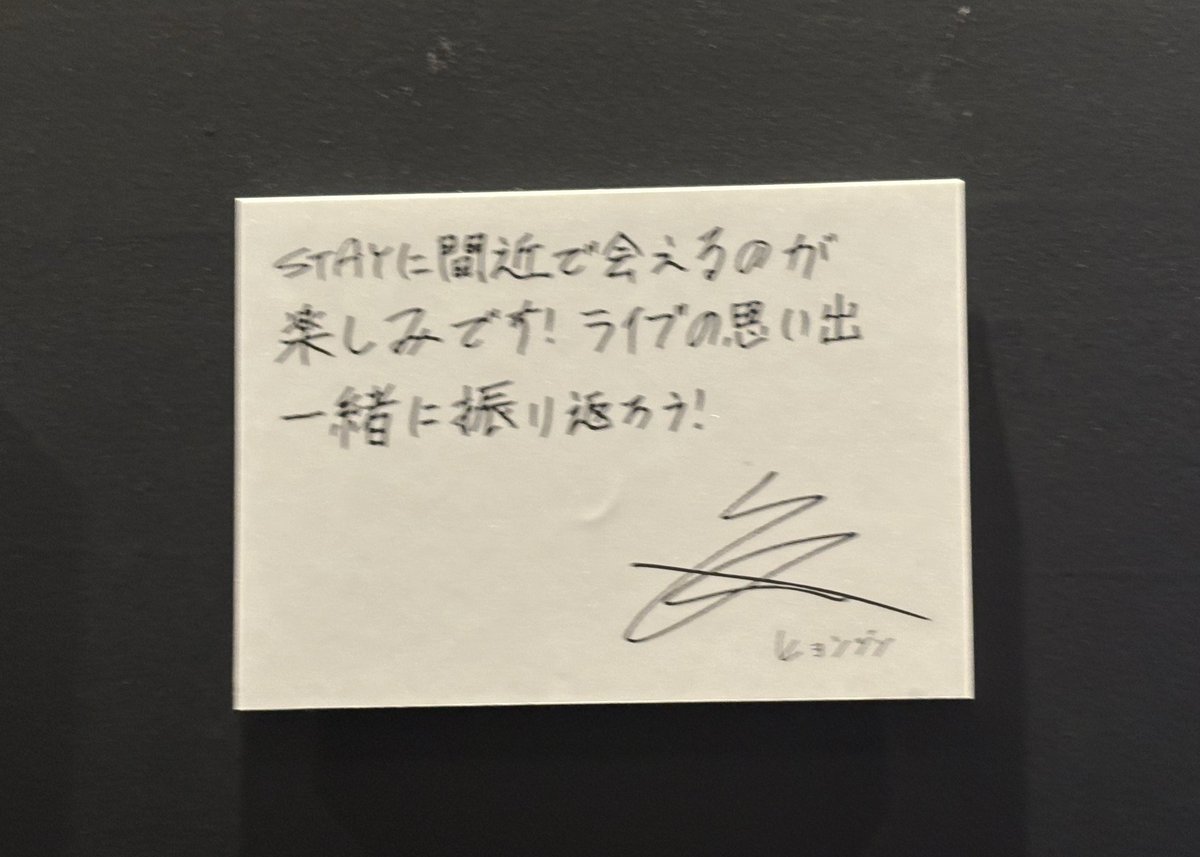 STAYに間近で会えるのが
楽しみです!ライブの思い出
一緒に振り返ろう!
ヒョンジン